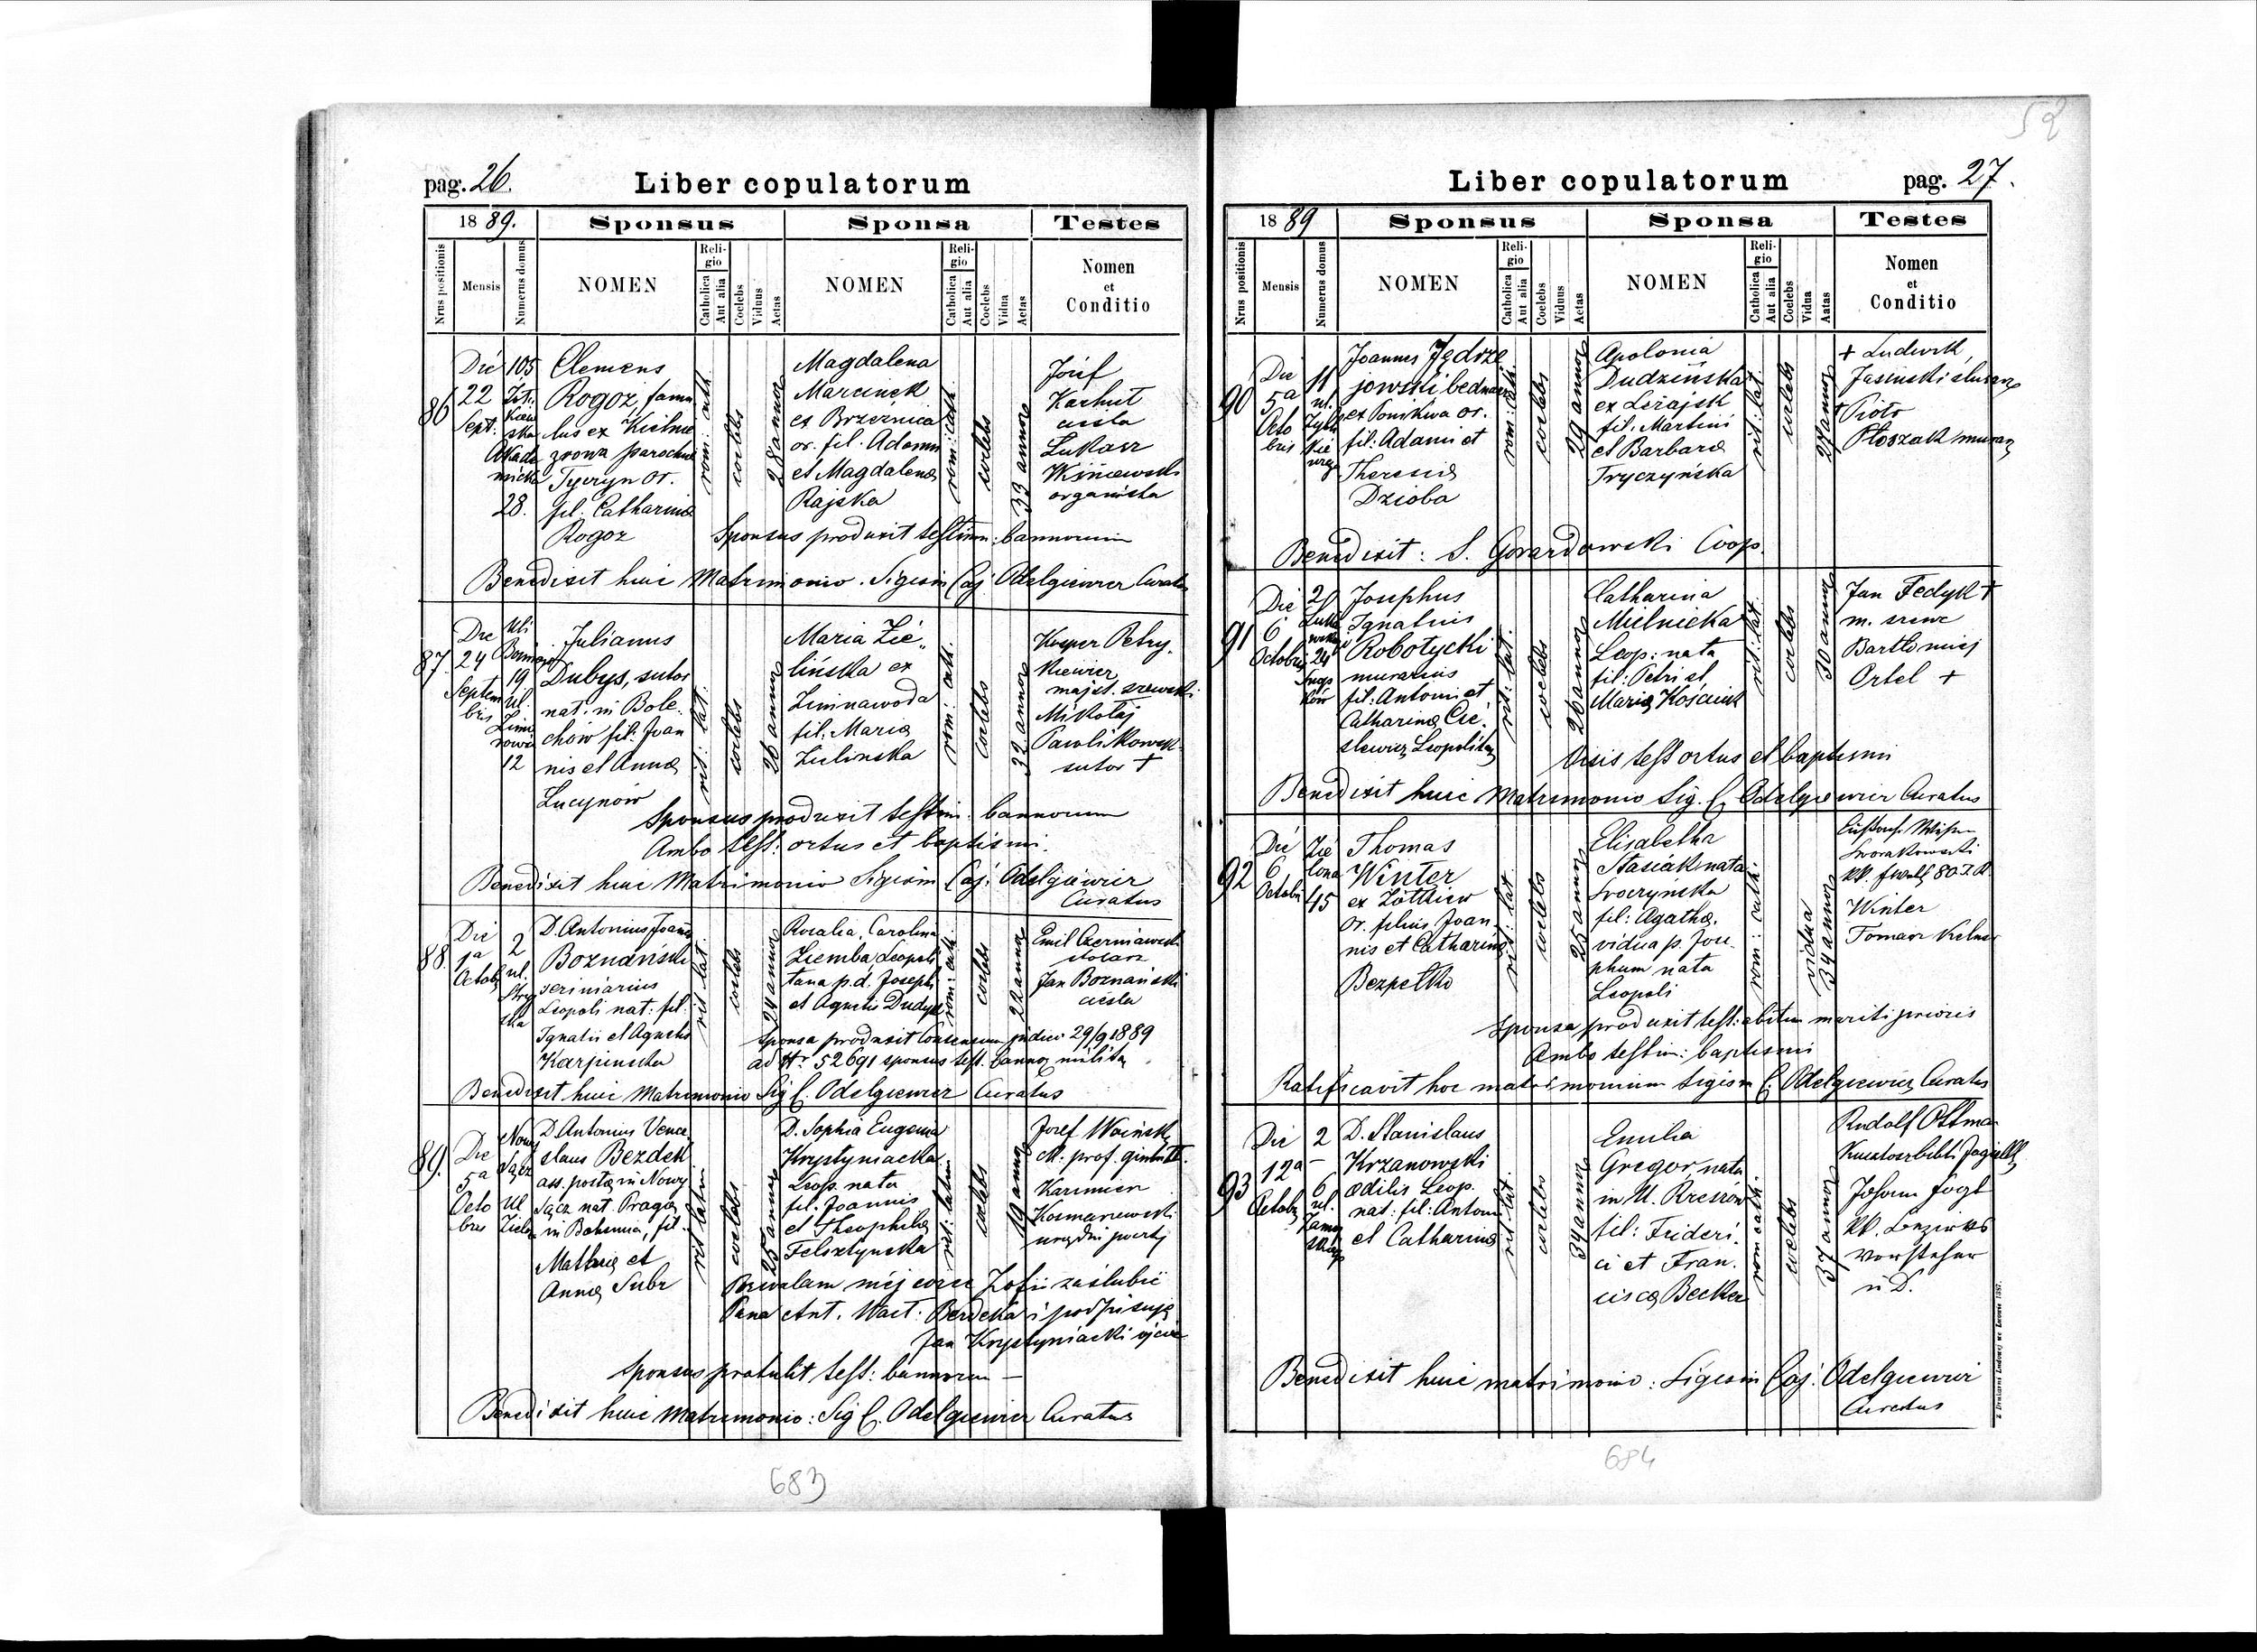 52
pag. 26.
Liber copulatorum
1889.
Sponsus
Sponsa
Testes
Nrus positionis
Mensis
Numerus domus
NOMEN
Religio
Catholica
Aut alia
Coelebs
Viduus
Aetas
NOMEN
Religio
Catholica
Aut alia
Coelebs
Vidua
Aetas
Nomen
et
Conditio
86
Die
22
Sept:
105
Akade
micka
28.
Clemens
Rogoz, famu
lus ex Kielna
rowa parochiae
Tyczyn or.
fil. Catharinae
Rogoz
rom: cath
coelebs
28 annor
Magdalena
Marciniek
ex Brzeźnica
or. fil. Adami
et Magdalena
Rajska
rom: cath.
coelebs
33 annor
Józef
Karhut
cieśla
Łukasz
Wiśniewski
organista
Sponsus produxit testim: bannorum
Benedixit huic Matrimonio. Sigism Caj. Odelgiewicz Curatus
87.
Die
24
Septem
bris
19
ul.
Zimo
rowicza
12
Julianus
Dubys, sutor
nat. in Bole
chów fil: Joan
nis et Annae
Lucynów
rit: lat.
coelebs
26 annor
Maria Zie„
lińska ex
Zimnawoda
fil: Maria
Zielinska
rom: cath.
coelebs
32 annor
Kasper Petry„
kiewicz
majst. szewski
Mikołaj
Pawlikowsk
sutor +
Sponsus produxit testim. bannorum
Ambo test: ortus et baptismi.
Benedixit huic Matrimonio Sigism Caj: Odelgiewicz
Curatus
88.
Die
1a
Octob
2
ul.
Stryj
ska
D. Antonius Joan
Boznański
scriniarius
Leopoli nat: fil:
Ignatii et Agnetis
Karpinska
rit lat.
coelebs
24 annor
Rosalia, Carolina
Ziemba, Leopoli
tana p.d. Josephi
et Agnetis Dudyk
rom: cath.
coelebs
22 annor
Emil Czerniawski
stolarz
Jan Boznański
cieśla
Sponsa produxit Consensum judici 29/9 1889
ad Nr. 52691 sponsus test. bannor militar.
Benedixit huic Matrimonio Sig C. Odelgiewicz Curatus
89.
Die
5a
Octo
bris
Nowy
Sącz
Ul
Zielo
D. Antonius Vence
slaus Bezdek
ass. postae in Nowy
Sącz nat. Pragae
in Bohemia, fil.
Mathiae et
Annae Subr
rit latin
coelebs
25 annor
D. Sophia Eugenia
Krystyniacka
Leop. nata
fil. Joannis
et Theophilae
Felsztynska
rit: latini
coelebs
19 annor
Józef Woiński
M. prof. gimn
Kazimierz
Kosmanewski
urzędni poczty
Pozwalam mej corce Zofii zaślubić
Pana Ant. Wacł. Bezdeka i podpisuję
Jan Krystyniacki ojciec
Sponsus protulit test: bannorum —
Benedixit huic Matrimonio: Sig C. Odelgiewicz Curatus
683
Liber copulatorum
pag. 27.
1889
Sponsus
Sponsa
Testes
Nrus positionis
Mensis
Numerus domus
NOMEN
Religio
Catholica
Aut alia
Coelebs
Viduus
Aetas
NOMEN
Religio
Catholica
Aut alia
Coelebs
Vidua
Aatas
Nomen
et
Conditio
90
Die
5a
Octo
bris
11
ul.
Zybli
kie
wicza
Joannes Jędrze
jowski bednarz
ex Ponikwa or.
fil: Adami et
Theresiae
Dzioba
rom: cath.
coelebs
29 annor
Apolonia
Dudzińska
ex Leżajsk
fil: Martini
et Barbarae
Tryczyńska
rit: lat.
coelebs
24 annor
+ Ludwik
Jasinski slusarz
+ Piotr
Płoszak murarz
Benedixit: S. Gorazdowski Coop.
91
Die
6
Octobris
Josephus
Ignatius
Robotycki
murarius
fil: Antoni et
Catharinae Cie
slewicz Leopolitan
rit: lat.
coelebs
26 annor
Catharina
Mielnicka
Leop: nata
fil: Petri et
Mariae Kościuk
rit: lat.
coelebs
30 annor
Jan Fedyk +
m. szewc
Bartłomiej
Ortel +
Visis test ortus et baptismi
Benedixit huic Matrimonio Sig. C. Odelgiewicz Curatus
92
Die
6
Octobr
Zie
lona
45
Thomas
Winter
ex Żółkiew
or. filius Joan
nis et Catharinae
Bezpełko
rit lat
coelebs
25 annor
Elisabetha
Stasiak nata
Sroczyńska
fil: Agathae,
vidua p. Jose
phum nata
Leopoli
rom: cath.
vidua
34 annor
Sworakowski
Winter
Tomasz Kelner
Sponsa produxit test: obitus mariti prioris
Ambo testim: baptismi
Ratificavit hoc matrimonium Sigism C. Odelgiewicz Curatus
93
Die
12a
Octob
2
—
6
ul.
Zamoj
skiego
D. Stanislaus
Krzanowski
aedilis Leop.
nat: fil: Antoni
et Catharinae
rit lat.
coelebs
34 annor
Emilia
Gregor nata
in U. Rzeszów
fil: Frideri„
ci et Fran„
ciscae Becker
rom cath.
coelebs
37 annor
Rudolf Ottman
Kustosz bibl: Jagiell
Johann Vogt
kk. Bezirks
Vorsteher
in D.
Benedixit huic matrimonio: Sigism Caj. Odelgiewicz
Curatus
Z Drukarni Ludowej we Lwowie 1887.
684